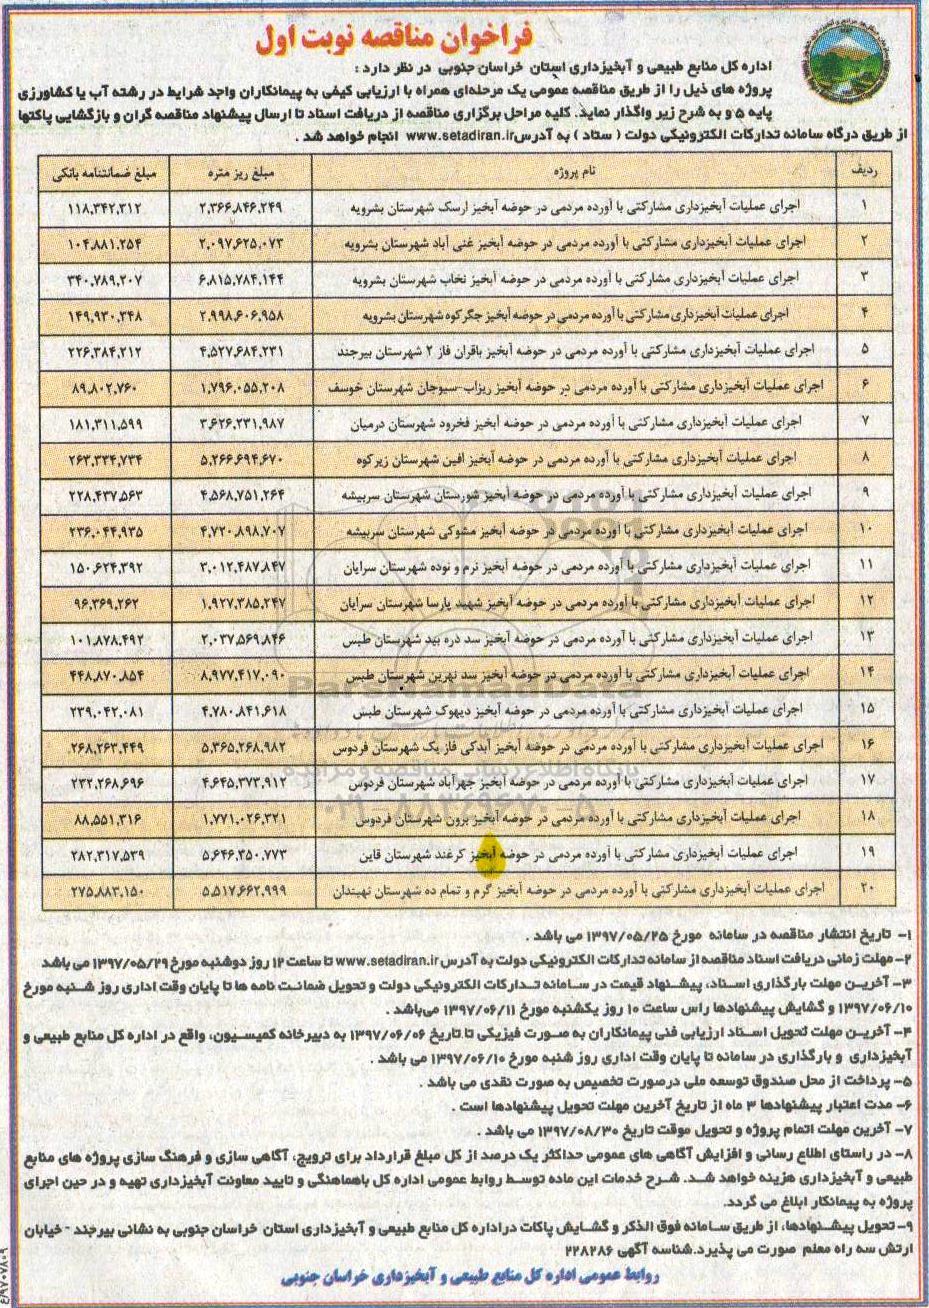 فراخوان مناقصه نوبت اول
اداره کل منابع طبیعی و آبخیزداری استان خراسان جنوبی در نظر دارد :
پروژه های ذیل را از طریق مناقصه عمومی یک مرحله‌ای همراه با ارزیابی کیفی به پیمانکاران واجد شرایط در رشته آب یا کشاورزی
پایه ۵ و به شرح زیر واگذار نماید. کلیه مراحل برگزاری مناقصه از دریافت اسناد تا ارسال پیشنهاد مناقصه گران و بازگشایی پاکتها
از طریق درگاه سامانه تدارکات الکترونیکی دولت ( ستاد ) به آدرس www.setadiran.ir انجام خواهد شد .
ردیف نام پروژه مبلغ ریز متره مبلغ ضمانتنامه بانکی
۱ اجرای عملیات آبخیزداری مشارکتی با آورده مردمی در حوضه آبخیز ارسک شهرستان بشرویه ۲,۳۶۶,۸۴۶,۲۴۹ ۱۱۸,۳۴۲,۳۱۲
۲ اجرای عملیات آبخیزداری مشارکتی با آورده مردمی در حوضه آبخیز غنی آباد شهرستان بشرویه ۲,۰۹۷,۶۲۵,۰۷۳ ۱۰۴,۸۸۱,۲۵۴
۳ اجرای عملیات آبخیزداری مشارکتی با آورده مردمی در حوضه آبخیز نخاب شهرستان بشرویه ۶,۸۱۵,۷۸۴,۱۴۴ ۳۴۰,۷۸۹,۲۰۷
۴ اجرای عملیات آبخیزداری مشارکتی با آورده مردمی در حوضه آبخیز جگرکوه شهرستان بشرویه ۲,۹۹۸,۶۰۶,۹۵۸ ۱۴۹,۹۳۰,۳۴۸
۵ اجرای عملیات آبخیزداری مشارکتی با آورده مردمی در حوضه آبخیز باقران فاز ۲ شهرستان بیرجند ۴,۵۲۷,۶۸۴,۲۳۱ ۲۲۶,۳۸۴,۲۱۲
۶ اجرای عملیات آبخیزداری مشارکتی با آورده مردمی در حوضه آبخیز ریزاب-سیوجان شهرستان خوسف ۱,۷۹۶,۰۵۵,۲۰۸ ۸۹,۸۰۲,۷۶۰
۷ اجرای عملیات آبخیزداری مشارکتی با آورده مردمی در حوضه آبخیز فخرود شهرستان درمیان ۳,۶۲۶,۲۳۱,۹۸۷ ۱۸۱,۳۱۱,۵۹۹
۸ اجرای عملیات آبخیزداری مشارکتی با آورده مردمی در حوضه آبخیز افین شهرستان زیرکوه ۵,۲۶۶,۶۹۴,۶۷۰ ۲۶۳,۳۳۴,۷۳۴
۹ اجرای عملیات آبخیزداری مشارکتی با آورده مردمی در حوضه آبخیز شورستان شهرستان سربیشه ۴,۵۶۸,۷۵۱,۲۶۴ ۲۲۸,۴۳۷,۵۶۳
۱۰ اجرای عملیات آبخیزداری مشارکتی با آورده مردمی در حوضه آبخیز مشوکی شهرستان سربیشه ۴,۷۲۰,۸۹۸,۷۰۷ ۲۳۶,۰۴۴,۹۳۵
۱۱ اجرای عملیات آبخیزداری مشارکتی با آورده مردمی در حوضه آبخیز نرم و نوده شهرستان سرایان ۳,۰۱۲,۴۸۷,۸۴۷ ۱۵۰,۶۲۴,۳۹۲
۱۲ اجرای عملیات آبخیزداری مشارکتی با آورده مردمی در حوضه آبخیز شهید پارسا شهرستان سرایان ۱,۹۲۷,۳۸۵,۲۴۷ ۹۶,۳۶۹,۲۶۲
۱۳ اجرای عملیات آبخیزداری مشارکتی با آورده مردمی در حوضه آبخیز سد دره بید شهرستان طبس ۲,۰۳۷,۵۶۹,۸۴۶ ۱۰۱,۸۷۸,۴۹۲
۱۴ اجرای عملیات آبخیزداری مشارکتی با آورده مردمی در حوضه آبخیز سد نهرین شهرستان طبس ۸,۹۷۷,۴۱۷,۰۹۰ ۴۴۸,۸۷۰,۸۵۴
۱۵ اجرای عملیات آبخیزداری مشارکتی با آورده مردمی در حوضه آبخیز دیهوک شهرستان طبس ۴,۷۸۰,۸۴۱,۶۱۸ ۲۳۹,۰۴۲,۰۸۱
۱۶ اجرای عملیات آبخیزداری مشارکتی با آورده مردمی در حوضه آبخیز آبدکی فاز یک شهرستان فردوس ۵,۳۶۵,۲۶۸,۹۸۲ ۲۶۸,۲۶۳,۴۴۹
۱۷ اجرای عملیات آبخیزداری مشارکتی با آورده مردمی در حوضه آبخیز جهرآباد شهرستان فردوس ۴,۶۴۵,۳۷۳,۹۱۲ ۲۳۲,۲۶۸,۶۹۶
۱۸ اجرای عملیات آبخیزداری مشارکتی با آورده مردمی در حوضه آبخیز برون شهرستان فردوس ۱,۷۷۱,۰۲۶,۳۲۱ ۸۸,۵۵۱,۳۱۶
۱۹ اجرای عملیات آبخیزداری مشارکتی با آورده مردمی در حوضه آبخیز کرغند شهرستان قاین ۵,۶۴۶,۳۵۰,۷۷۳ ۲۸۲,۳۱۷,۵۳۹
۲۰ اجرای عملیات آبخیزداری مشارکتی با آورده مردمی در حوضه آبخیز گرم و تمام ده شهرستان نهبندان ۵,۵۱۷,۶۶۲,۹۹۹ ۲۷۵,۸۸۳,۱۵۰
ParsNamadData
۰۲۱-۸۸۳۴۹۶۷۰-۵
۱- تاریخ انتشار مناقصه در سامانه مورخ ۱۳۹۷/۰۵/۲۵ می باشد .
۲- مهلت زمانی دریافت اسناد مناقصه از سامانه تدارکات الکترونیکی دولت به آدرس www.setadiran.ir تا ساعت ۱۲ روز دوشنبه مورخ ۱۳۹۷/۰۵/۲۹ می باشد
۳- آخرین مهلت بارگذاری اسناد، پیشنهاد قیمت در سامانه تدارکات الکترونیکی دولت و تحویل ضمانت نامه ها تا پایان وقت اداری روز شنبه مورخ
۱۳۹۷/۰۶/۱۰ و گشایش پیشنهادها راس ساعت ۱۰ روز یکشنبه مورخ ۱۳۹۷/۰۶/۱۱ می‌باشد .
۴- آخرین مهلت تحویل اسناد ارزیابی فنی پیمانکاران به صورت فیزیکی تا تاریخ ۱۳۹۷/۰۶/۰۶ به دبیرخانه کمیسیون، واقع در اداره کل منابع طبیعی و
آبخیزداری و بارگذاری در سامانه تا پایان وقت اداری روز شنبه مورخ ۱۳۹۷/۰۶/۱۰ می باشد .
۵- پرداخت از محل صندوق توسعه ملی درصورت تخصیص به صورت نقدی می باشد .
۶- مدت اعتبار پیشنهادها ۳ ماه از تاریخ آخرین مهلت تحویل پیشنهادها است .
۷- آخرین مهلت اتمام پروژه و تحویل موقت تاریخ ۱۳۹۷/۰۸/۳۰ می باشد .
۸- در راستای اطلاع رسانی و افزایش آگاهی های عمومی حداکثر یک درصد از کل مبلغ قرارداد برای ترویج، آگاهی سازی و فرهنگ سازی پروژه های منابع
طبیعی و آبخیزداری هزینه خواهد شد. شرح خدمات این ماده توسط روابط عمومی اداره کل باهماهنگی و تایید معاونت آبخیزداری تهیه و در حین اجرای
پروژه به پیمانکار ابلاغ می گردد.
۹- تحویل پیشنهادها، از طریق سامانه فوق الذکر و گشایش پاکات دراداره کل منابع طبیعی و آبخیزداری استان خراسان جنوبی به نشانی بیرجند - خیابان
ارتش سه راه معلم صورت می پذیرد.شناسه آگهی ۲۲۸۲۸۶
روابط عمومی اداره کل منابع طبیعی و آبخیزداری خراسان جنوبی
۹۷۰۷۸۰۹/ع